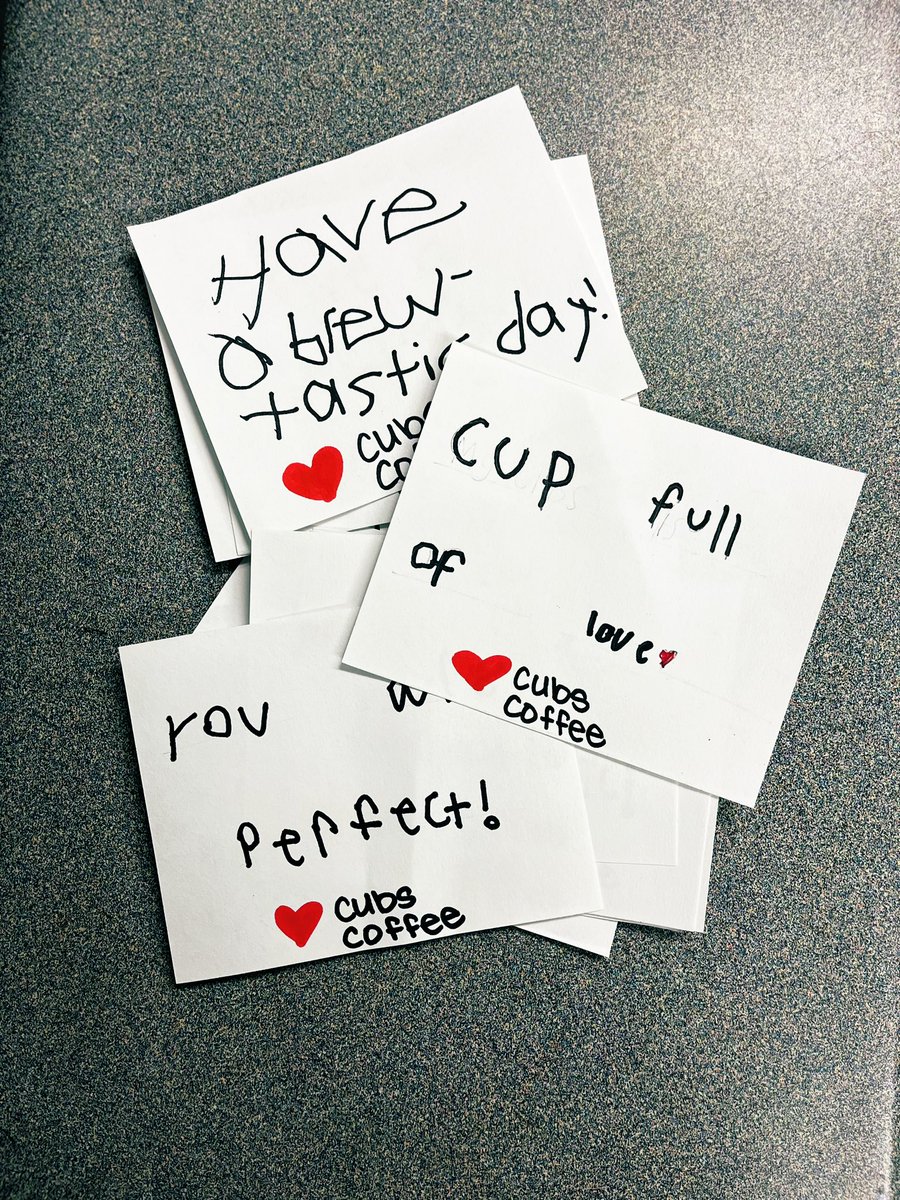 Have
a brew-
tastic day!
cubs
co
cup full
of
love
cubs
coffee
you
perfect!
cubs
coffee